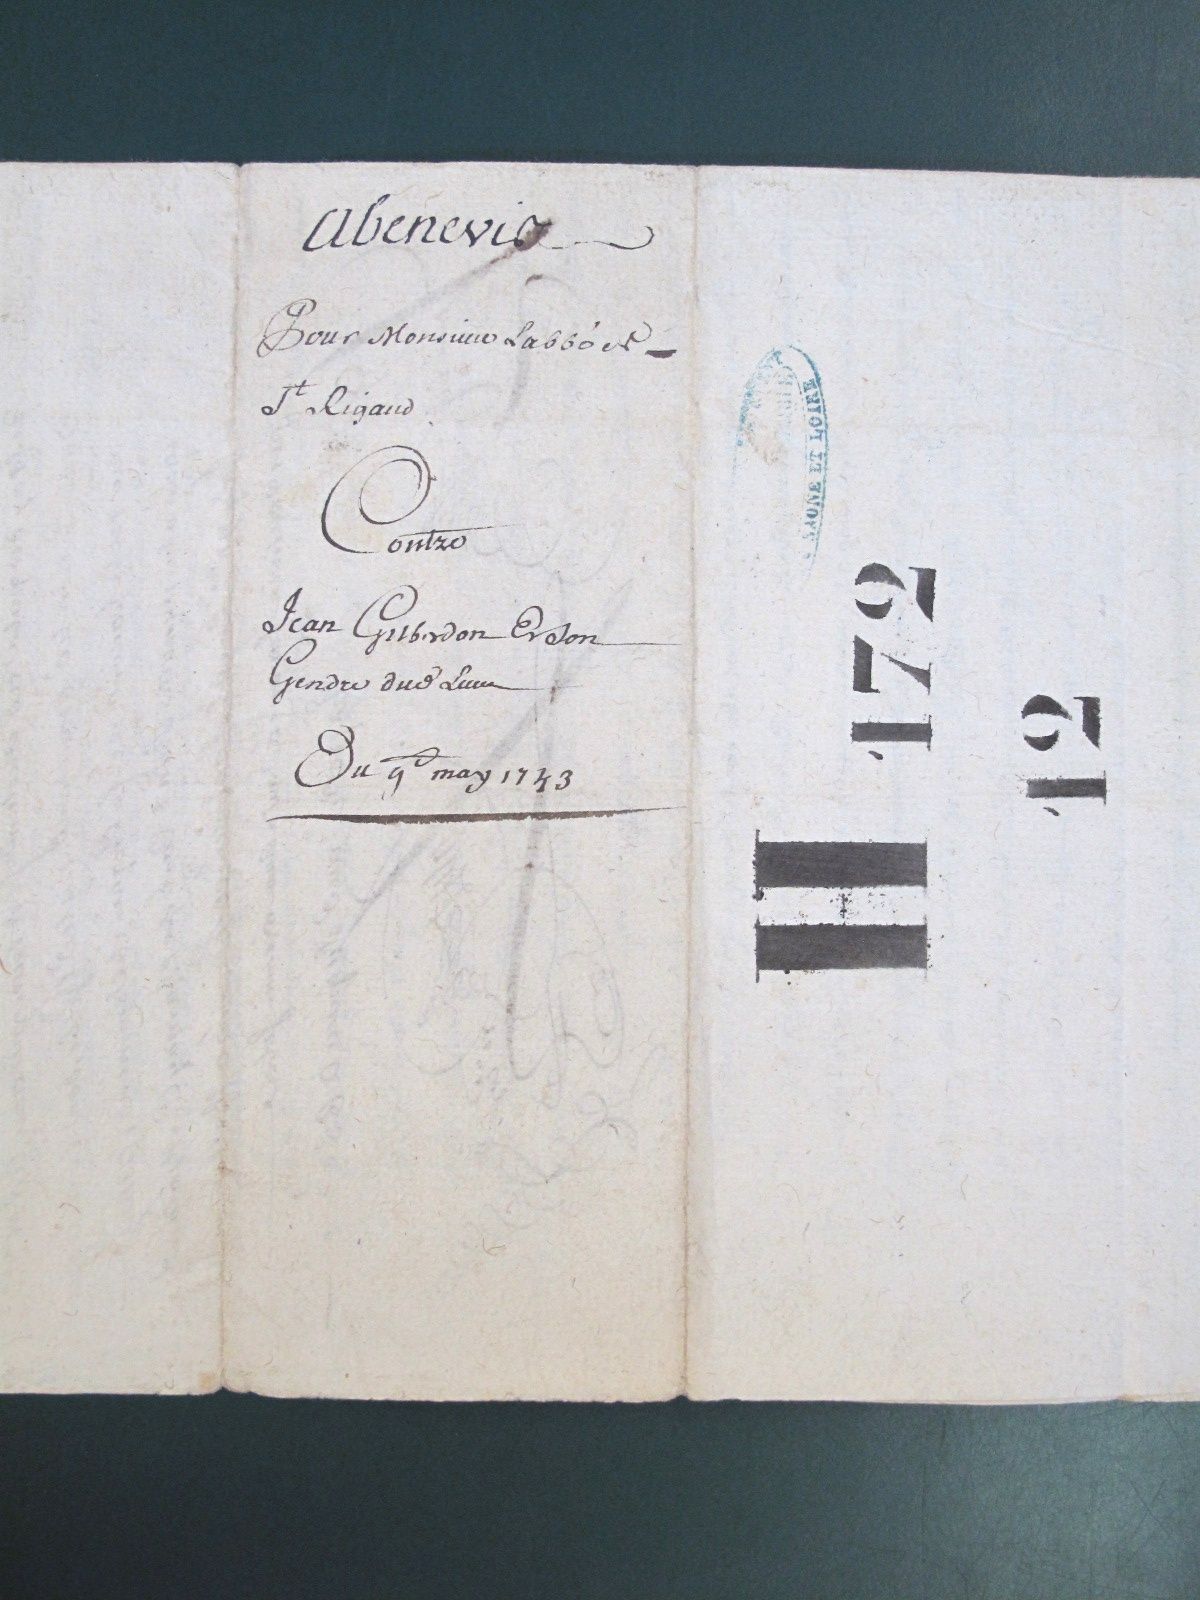 Abenevis
Pour Monsieur Labbé de
St Rigaud
Contre
Jean Guberdon Erson
Gendre dud
Du 9e may 1743
SAONE ET LOIRE
H 172
12